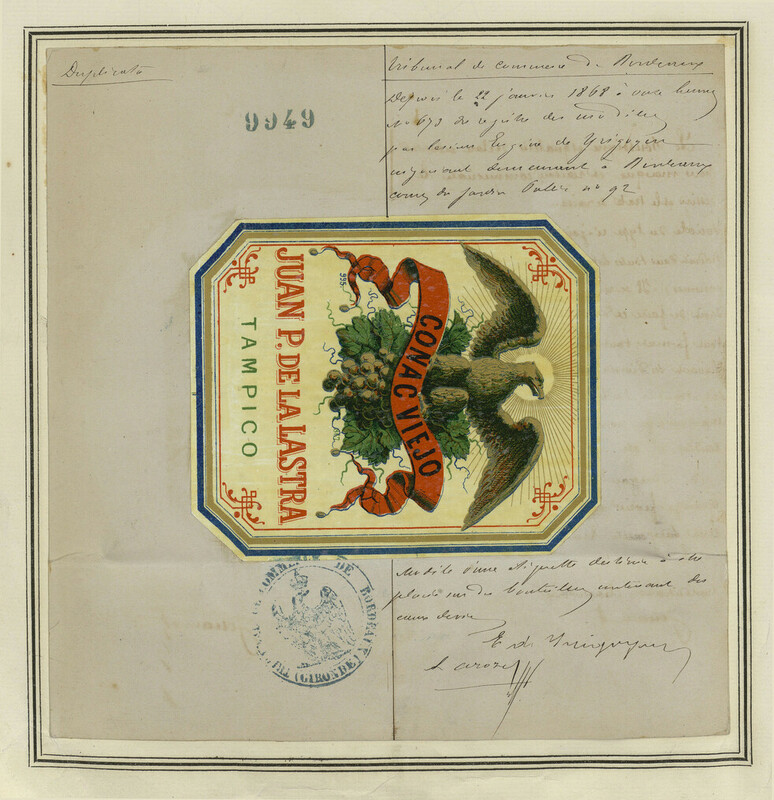 Duplicata
9949
Tribunal de commerce de Bordeaux
Depôt le 22 janvier 1868 à onze heures
No 673 du registre des modèles
par le sieur Eugène de Yrigoyen
négociant demeurant à Bordeaux
cours du Jardin Public no 92
CONAC VIEJO
995
JUAN P. DE LA LASTRA
TAMPICO
Modèle d'une étiquette destinée à être
placée sur des bouteilles contenant des
eaux de vie
E de Yrigoyen
TRIBUNAL DE COMMERCE DE BORDEAUX
(GIRONDE)